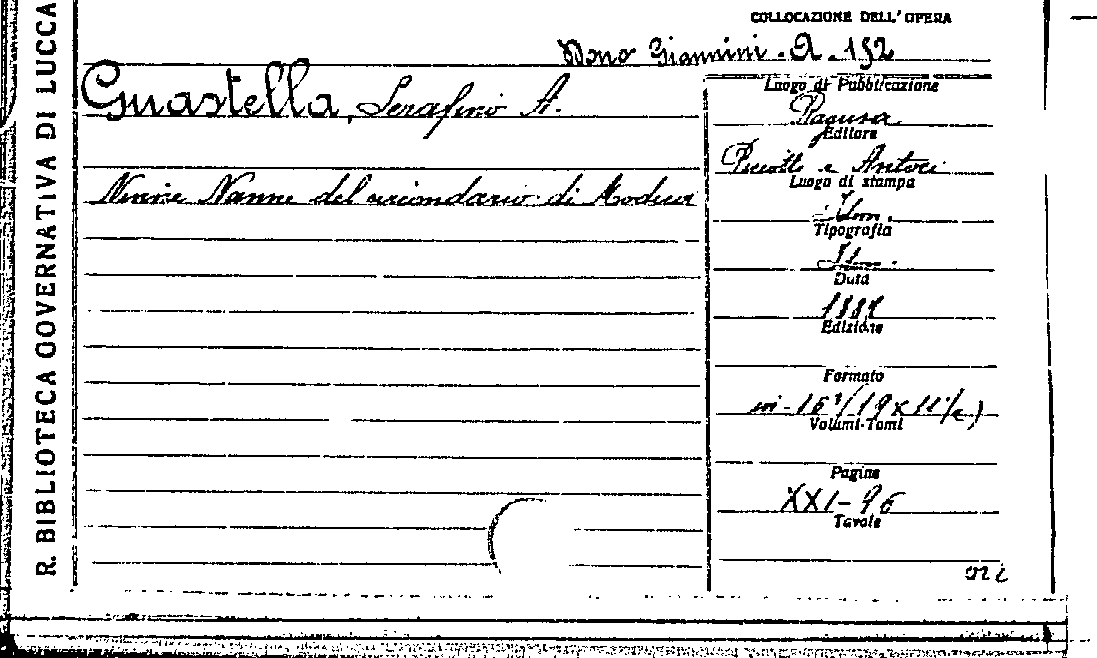 R. BIBLIOTECA GOVERNATIVA DI LUCCA
COLLOCAZIONE DELL'OPERA
Dono Giannini - A. 152
Guastella, Serafino A.
Ninne Nanne del circondario di Modica
Luogo di Pubblicazione
Ragusa
Editore
Piccitto e Antoci
Luogo di stampa
Idem.
Tipografia
Idem.
Data
1887
Edizione
Formato
in-16° (19x11 1/2)
Volumi-Tomi
Pagine
XXI-96
Tavole